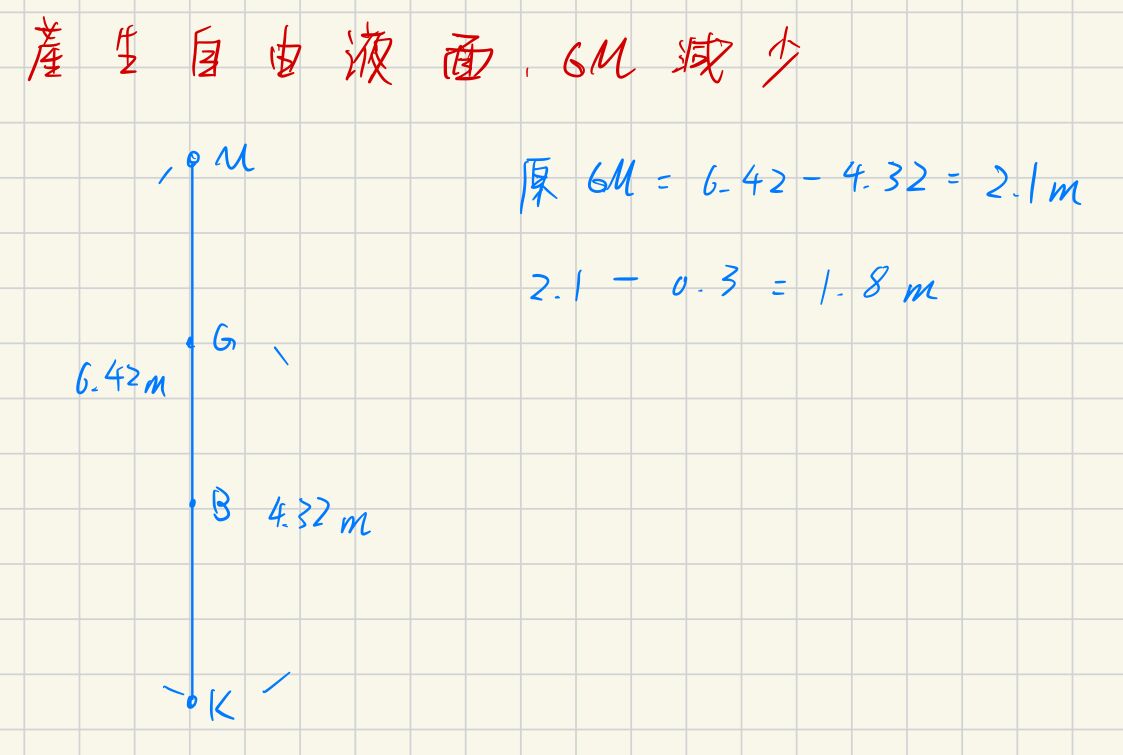 產生自由液面,GM減少
M
原 GM = 6.42 - 4.32 = 2.1 m
2.1 - 0.3 = 1.8 m
G
6.42 m
B 4.32 m
K